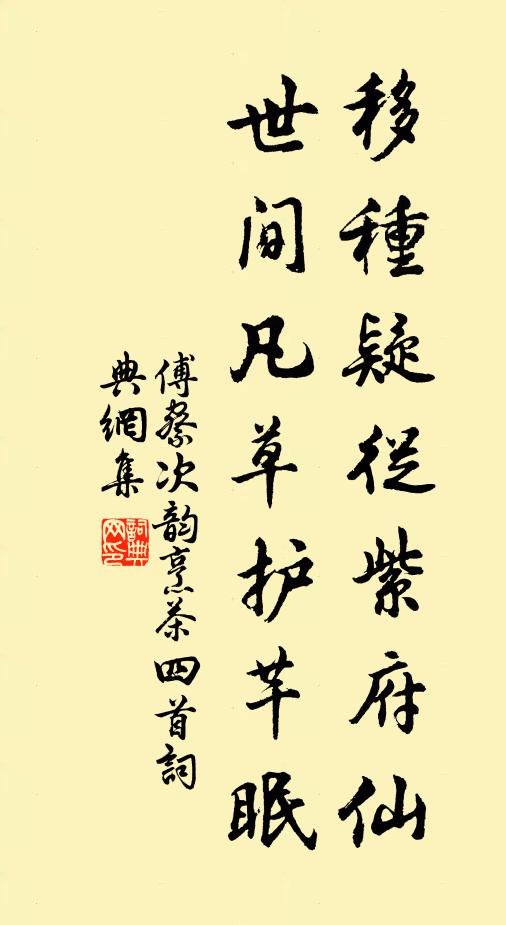 移種疑從紫府仙
世间凡草护芊眠
傅察次韵烹茶四首詞
典網集
詞典
网印